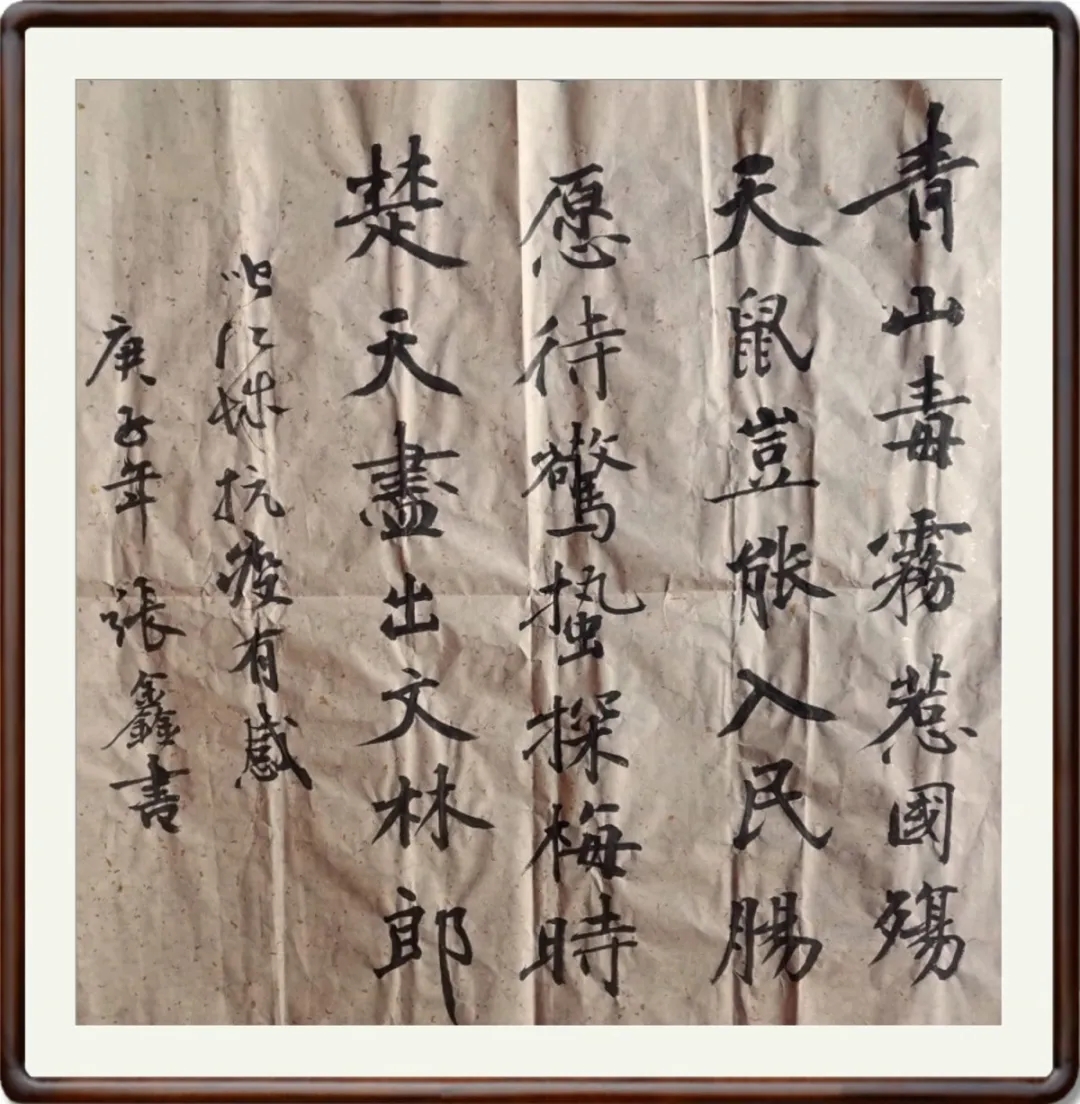 青山毒霧惹國殤
天鼠豈能入民腸
愿待驚蟄探梅時
楚天盡出文林郎
江城抗疫有感
庚子年 張鑫書